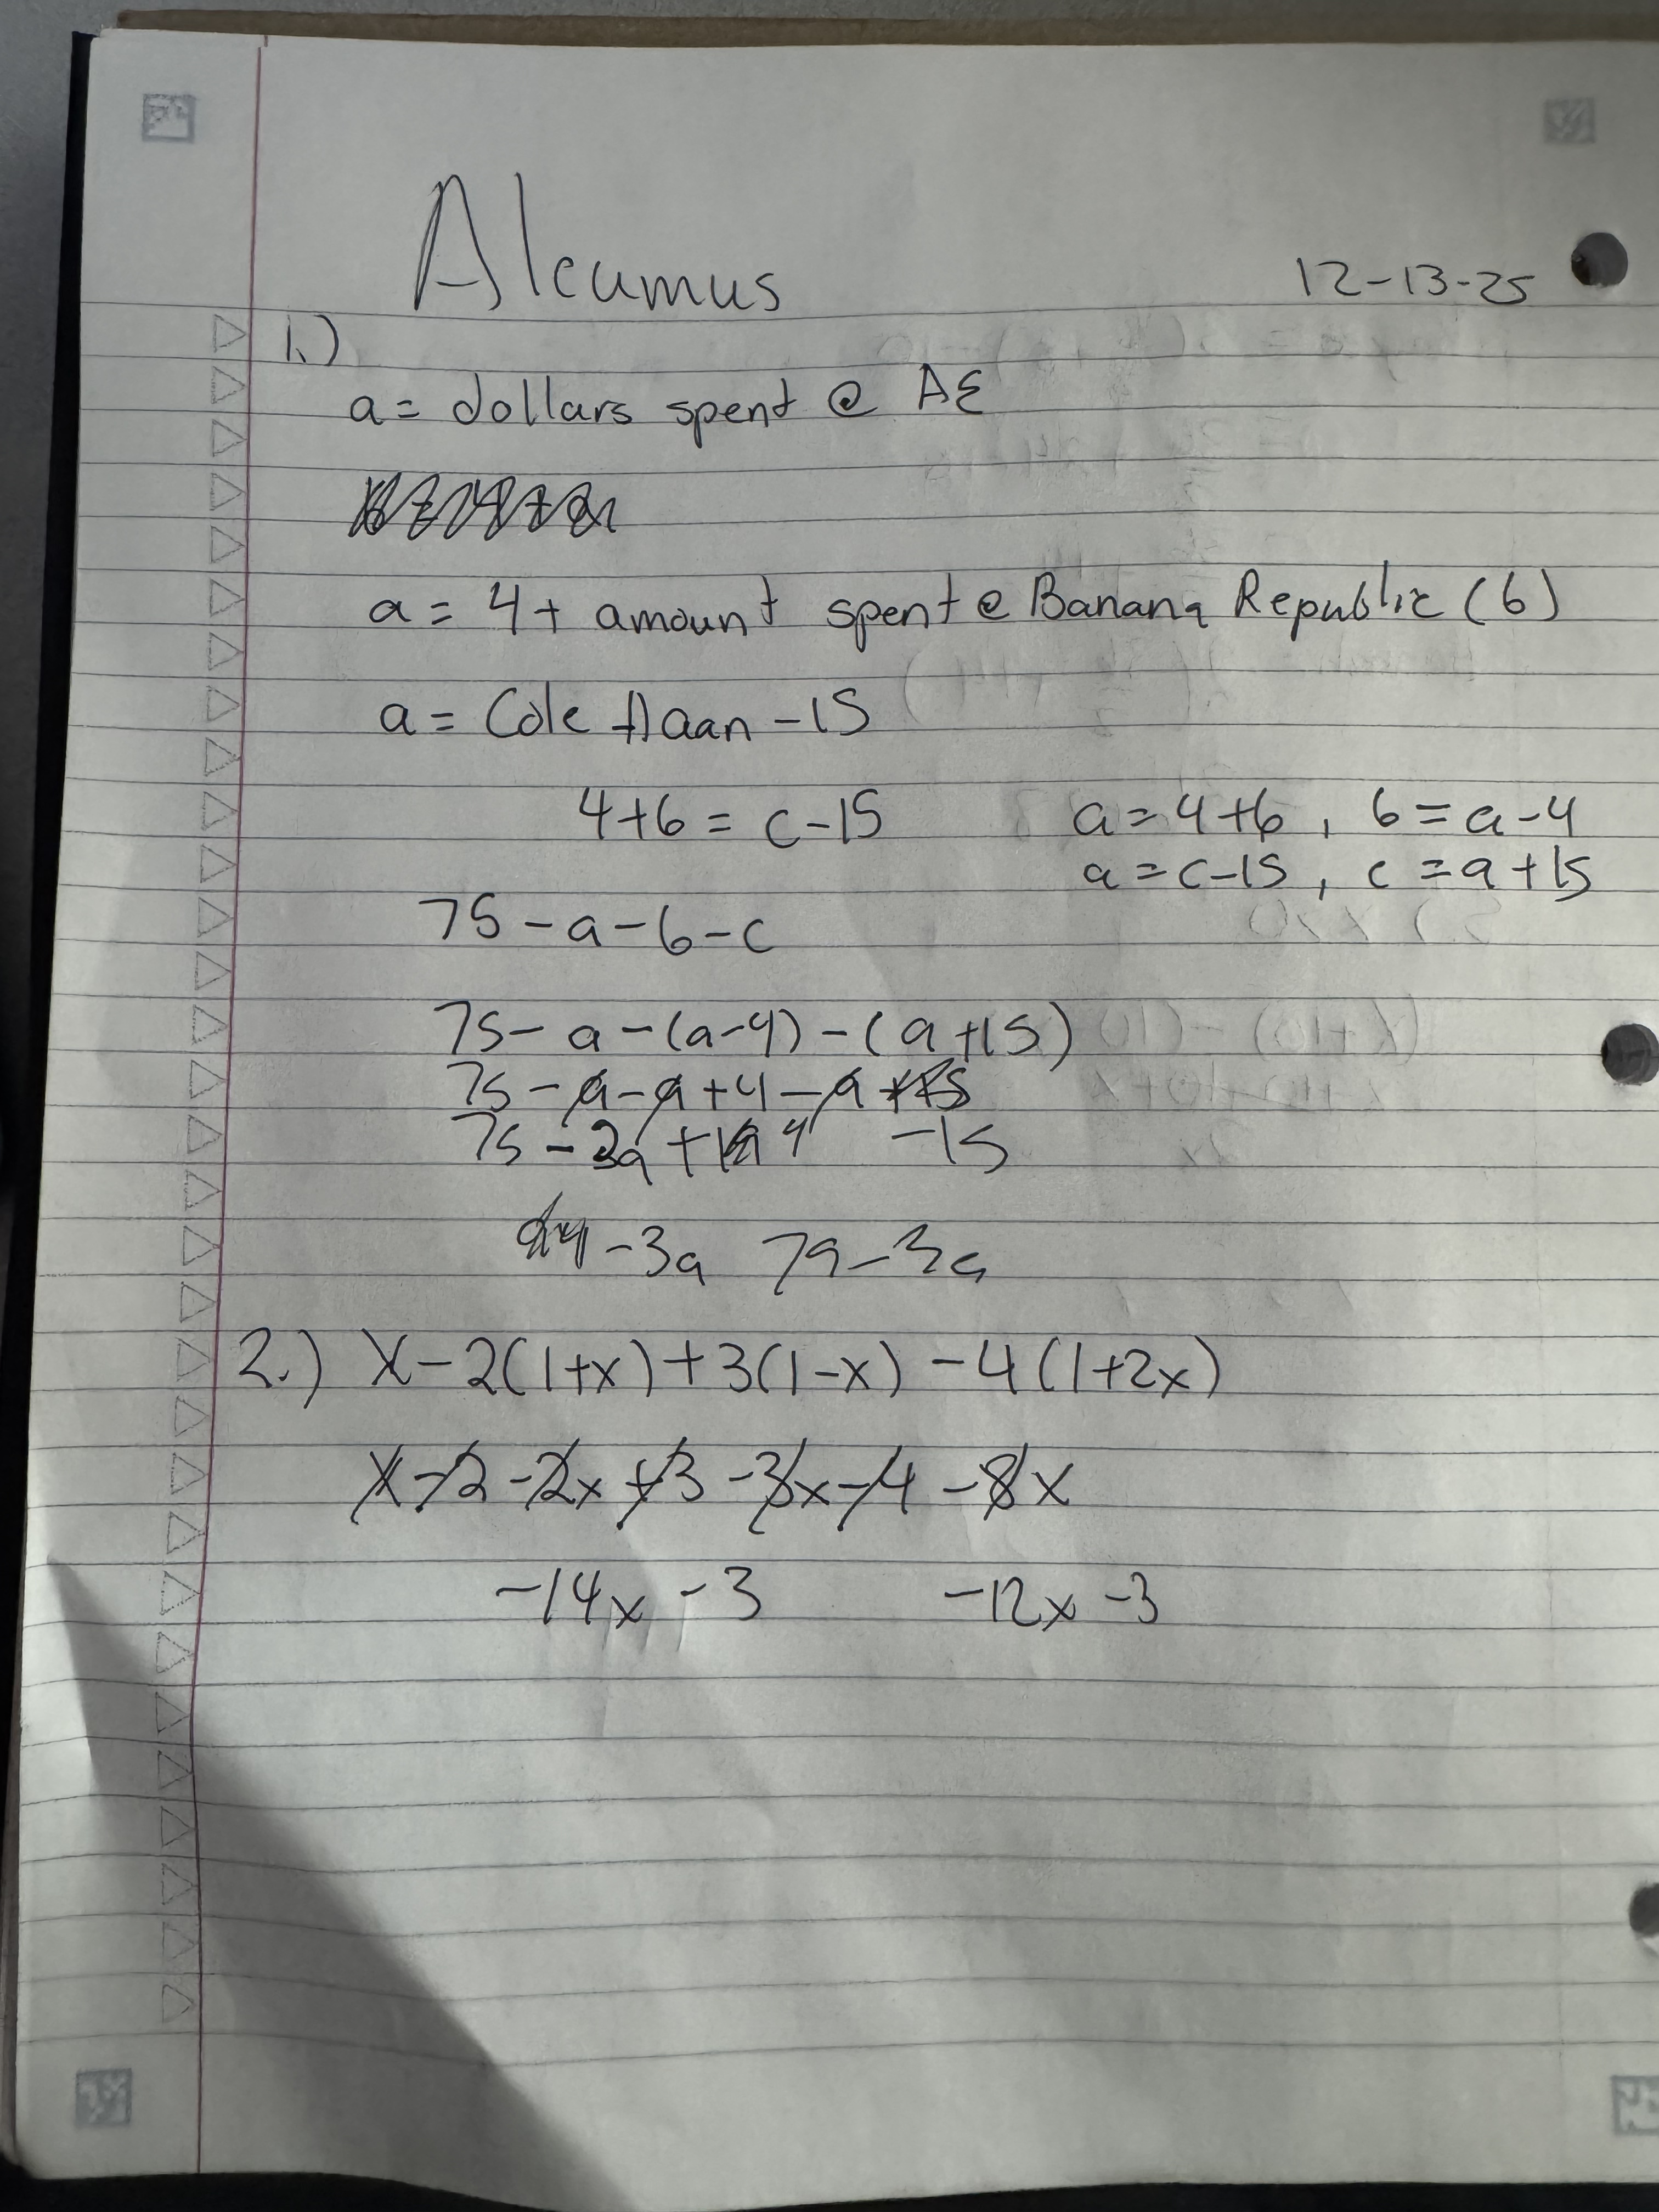 Alcumus
12-13-25
1.)
a = dollars spent @ AE
a = 4 + amount spent @ Banana Republic (b)
a = Cole Haan - 15
4+b = c-15
a = 4+b , b = a-4
a = c-15 , c = a+15
75 - a - b - c
75 - a - (a-4) - (a+15)
75 - a - a + 4 - a
75 - 3a + 4 - 15
-3a 79-3a
2.) x - 2(1+x) + 3(1-x) - 4(1+2x)
x - 2 - 2x + 3 - 3x - 4 - 8x
-14x - 3 -12x - 3